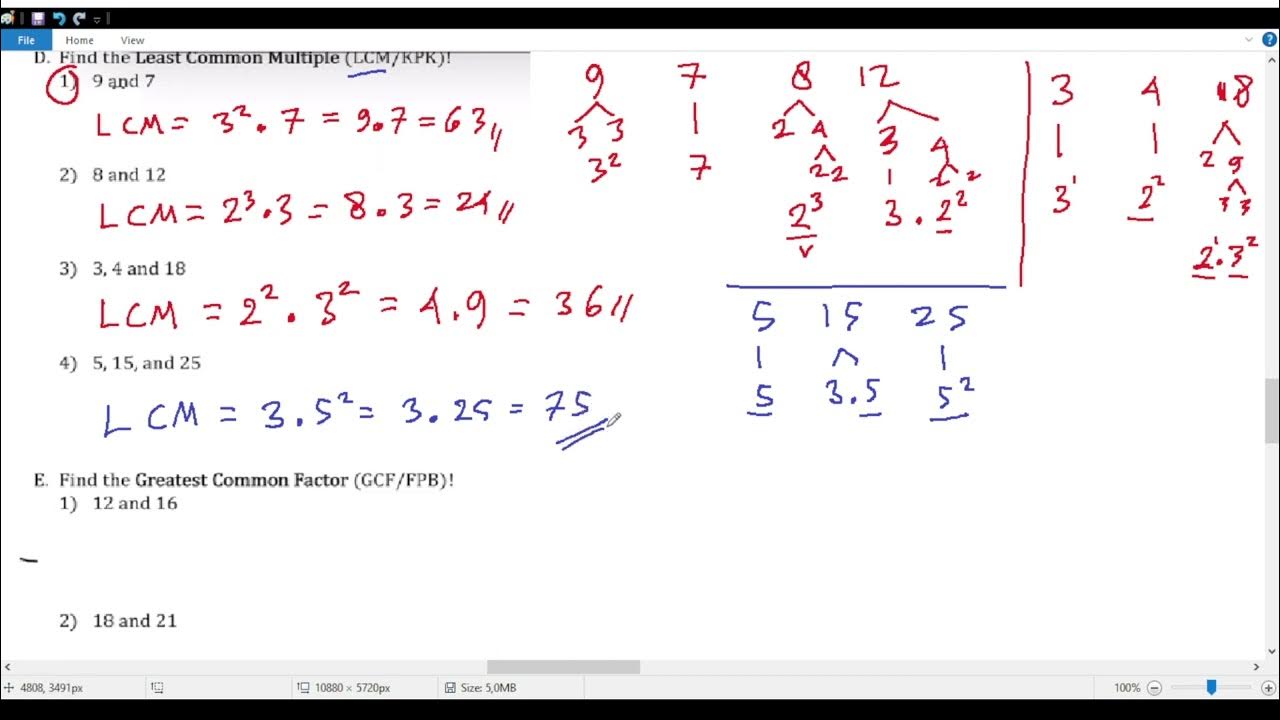 File Home View
D. Find the Least Common Multiple (LCM/KPK)!
1) 9 and 7
LCM = 3² . 7 = 9.7 = 63 //
2) 8 and 12
LCM = 2³ . 3 = 8 . 3 = 24 //
3) 3, 4 and 18
LCM = 2² . 3² = 4.9 = 36 //
4) 5, 15, and 25
LCM = 3 . 5² = 3 . 25 = 75
9 7 8 12
3 3 2 4 3 4
3² 7 2 2 2 2
2³ 3 . 2²
3 4 18
2 9
3¹ 2² 3 3
2¹.3²
5 15 25
5 3.5 5²
E. Find the Greatest Common Factor (GCF/FPB)!
1) 12 and 16
2) 18 and 21
4808, 3491px 10880 × 5720px Size: 5,0MB 100%